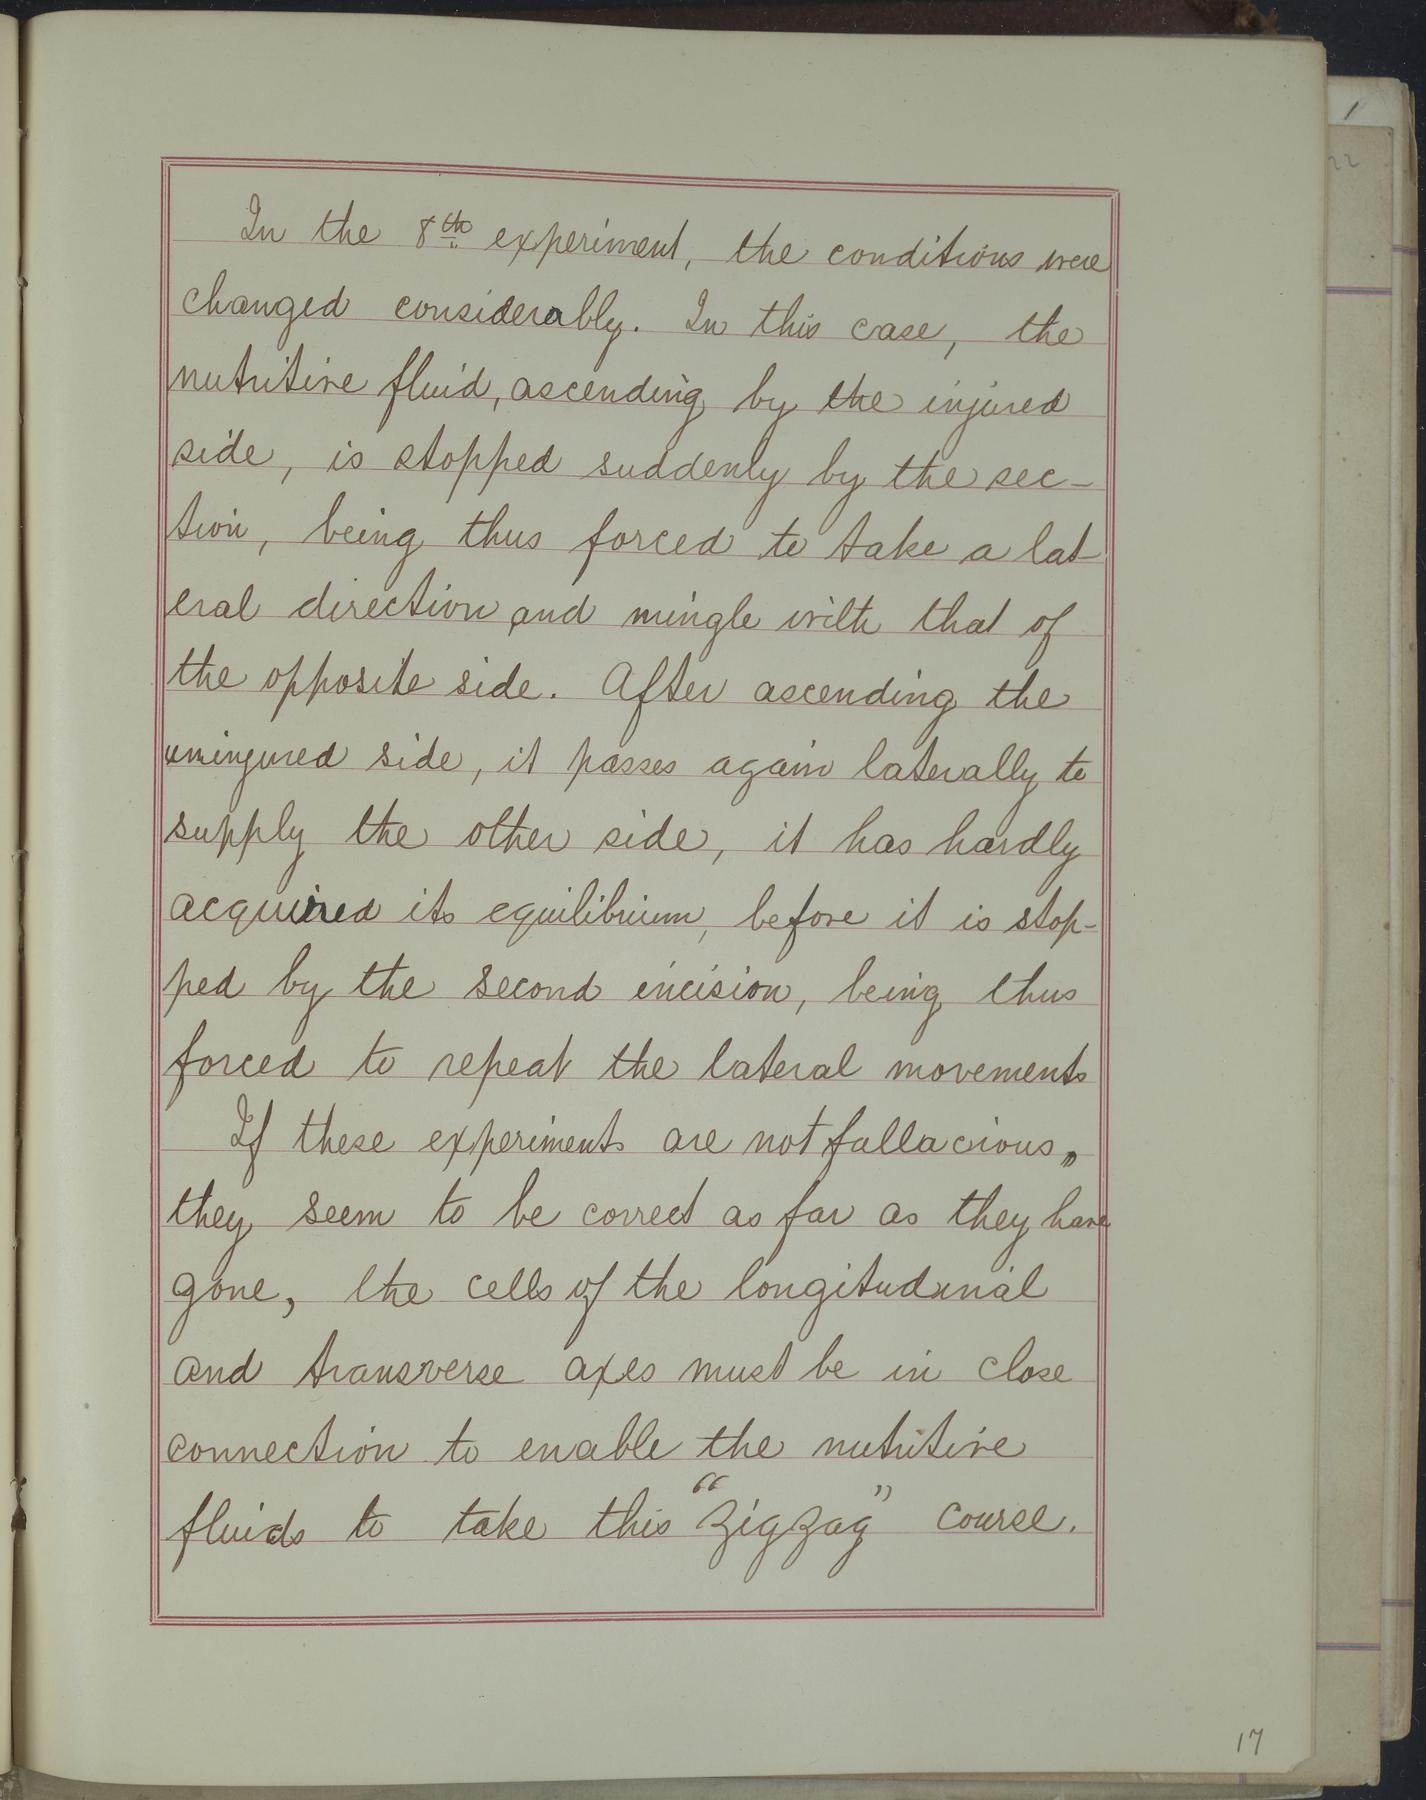 In the 8th experiment, the conditions were
changed considerably. In this case, the
nutritive fluid, ascending by the injured
side, is stopped suddenly by the sec-
tion, being thus forced to take a lat-
eral direction and mingle with that of
the opposite side. After ascending the
uninjured side, it passes again laterally to
supply the other side, it has hardly
acquired its equilibrium, before it is stop-
ped by the second incision, being thus
forced to repeat the lateral movements
If these experiments are not fallacious,,
they seem to be correct as far as they have
gone, the cells of the longitudinal
and transverse axes must be in close
connection to enable the nutritive
fluids to take this "zigzag" course.
17
1
22